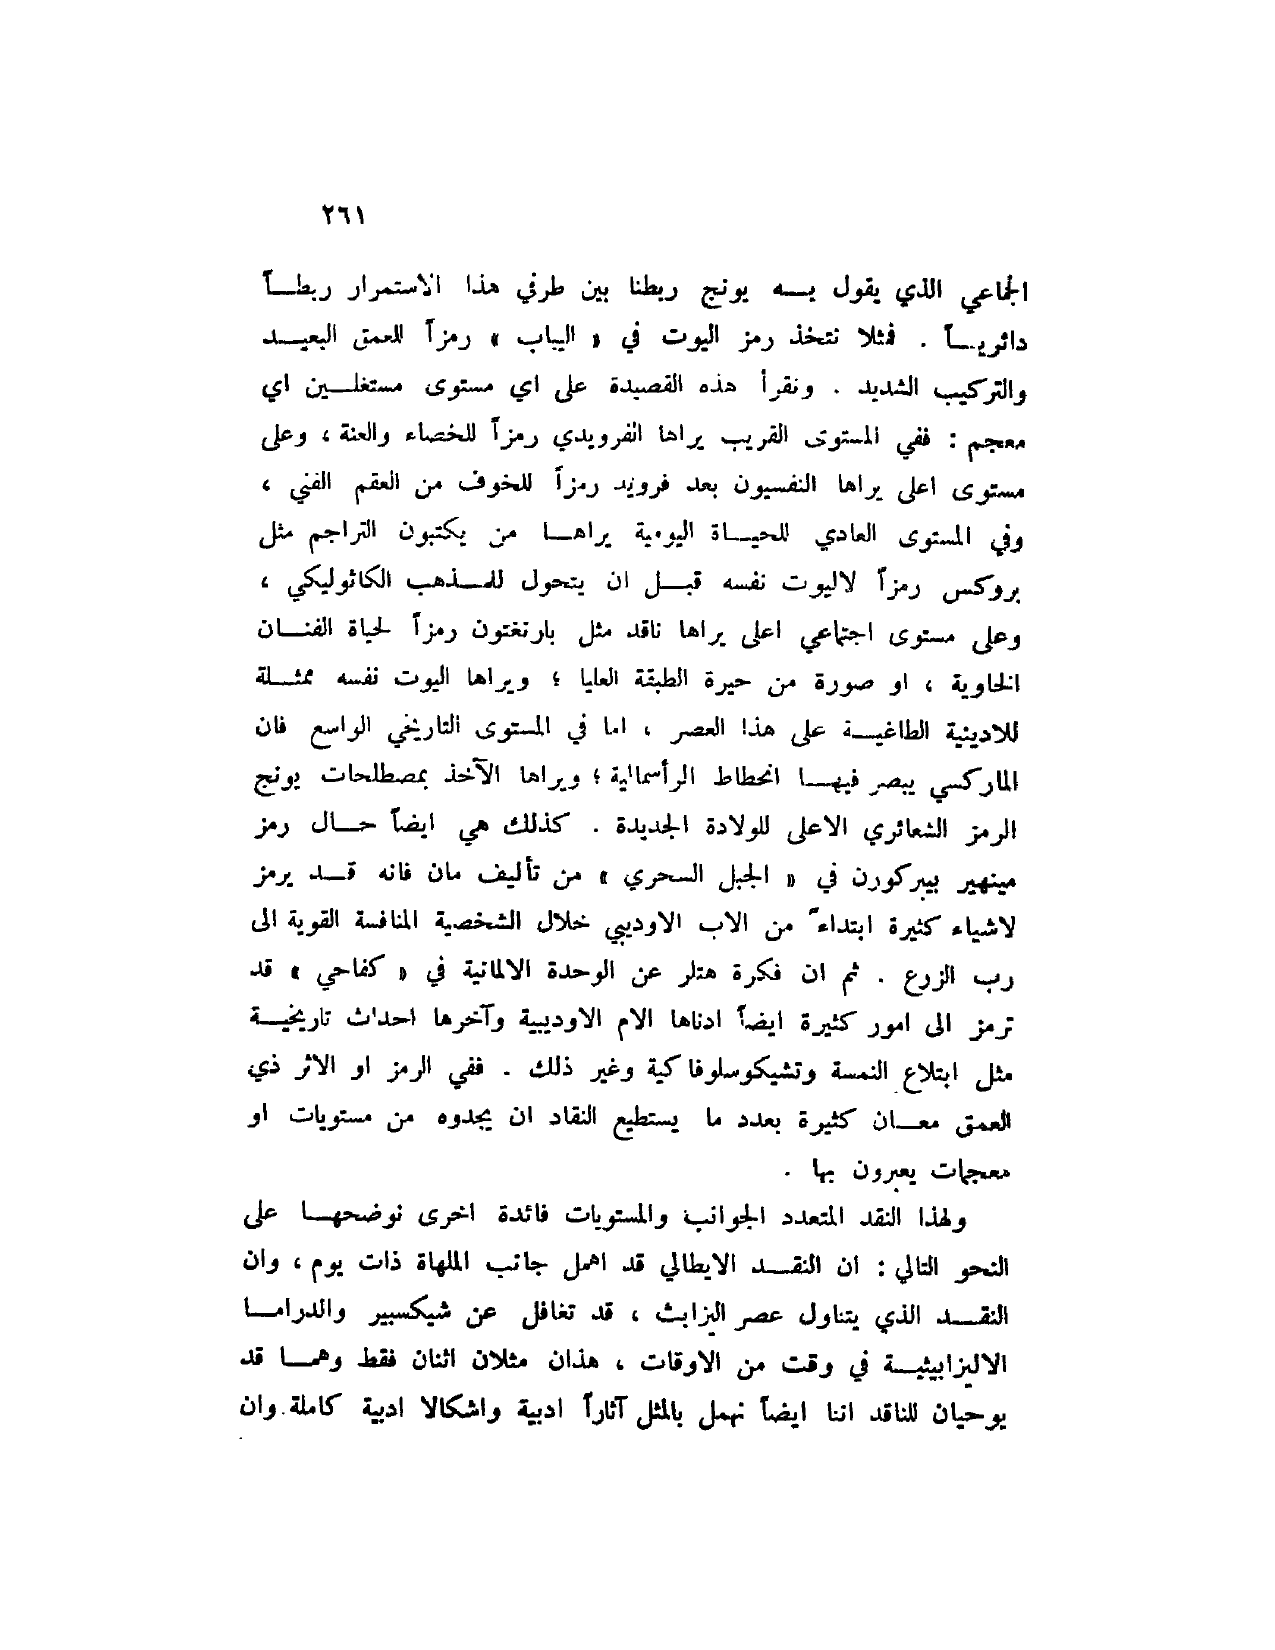 ٢٦١
الجماعي الذي يقول به يونج ربطنا بين طرفي هذا الاستمرار ربطاً
دائرياً . فمثلا نتخذ رمز اليوت في « اليباب » رمزاً للعمق البعيد
والتركيب الشديد . ونقرأ هذه القصيدة على اي مستوى مستغلين اي
معجم : ففي المستوى القريب يراها الفرويدي رمزاً للخصاء والعنة ، وعلى
مستوى اعلى يراها النفسيون بعد فرويد رمزاً للخوف من العقم الفني ،
وفي المستوى العادي للحياة اليومية يراها من يكتبون التراجم مثل
بروكس رمزاً لاليوت نفسه قبل ان يتحول للمذهب الكاثوليكي ،
وعلى مستوى اجتماعي اعلى يراها ناقد مثل بارنغتون رمزاً لحياة الفنان
الخاوية ، او صورة من حيرة الطبقة العليا ؛ ويراها اليوت نفسه ممثلة
للادينية الطاغية على هذا العصر ، اما في المستوى التاريخي الواسع فان
الماركسي يبصر فيها انحطاط الرأسمالية ؛ ويراها الآخذ بمصطلحات يونج
الرمز الشعائري الاعلى للولادة الجديدة . كذلك هي ايضاً حال رمز
مينهير بيبركورن في « الجبل السحري » من تأليف مان فانه قد يرمز
لاشياء كثيرة ابتداءً من الاب الاوديبي خلال الشخصية المنافسة القوية الى
رب الزرع . ثم ان فكرة هتلر عن الوحدة الالمانية في « كفاحي » قد
ترمز الى امور كثيرة ايضاً ادناها الام الاوديبية وآخرها احداث تاريخية
مثل ابتلاع النمسة وتشيكوسلوفاكية وغير ذلك . ففي الرمز او الاثر ذي
العمق معان كثيرة بعدد ما يستطيع النقاد ان يجدوه من مستويات او
معجمات يعبرون بها .
ولهذا النقد المتعدد الجوانب والمستويات فائدة اخرى نوضحها على
النحو التالي : ان النقد الايطالي قد اهمل جانب الملهاة ذات يوم ، وان
النقد الذي يتناول عصر اليزابث ، قد تغافل عن شيكسبير والدراما
الاليزابيثية في وقت من الاوقات ، هذان مثلان اثنان فقط وهما قد
يوحيان للناقد اننا ايضاً نهمل بالمثل آثاراً ادبية واشكالا ادبية كاملة. وان